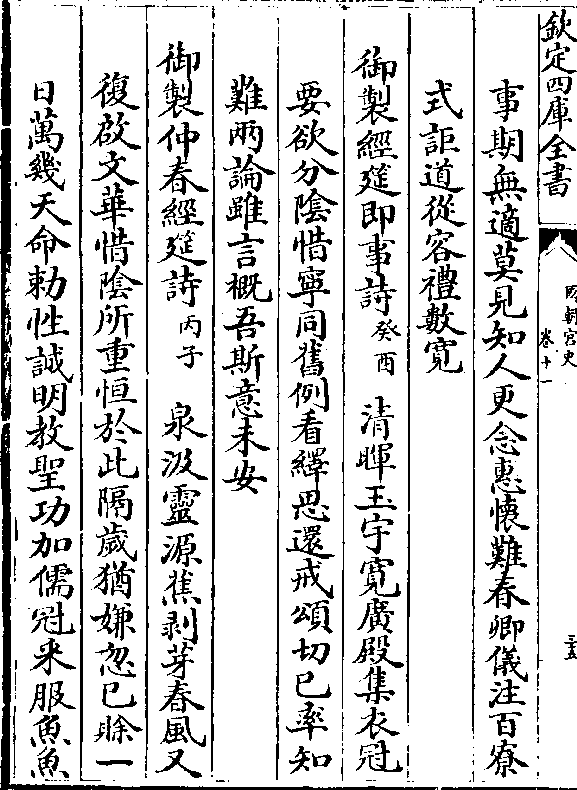 欽定四庫全書
國朝宮史
卷十一
三五
事期無適莫見知人更念惠懷難春卿儀注百寮
式詎道從容禮數寛
御製經筵即事詩癸酉 清暉玉宇寛廣殿集衣冠
要欲分陰惜寧同舊例看繹思還戒頌切已率知
難兩論雖言概吾斯意未安
御製仲春經筵詩丙子 泉汲靈源蕉剥芽春風又
復啟文華惜陰所重恒於此隔歲猶嫌忽已賖一
日萬幾天命勅性誠明教聖功加儒冠采服魚魚